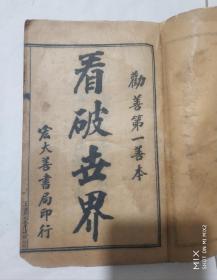 勸善第一善本
看破世界
宏大善書局印行
SHOT ON MI MIX2